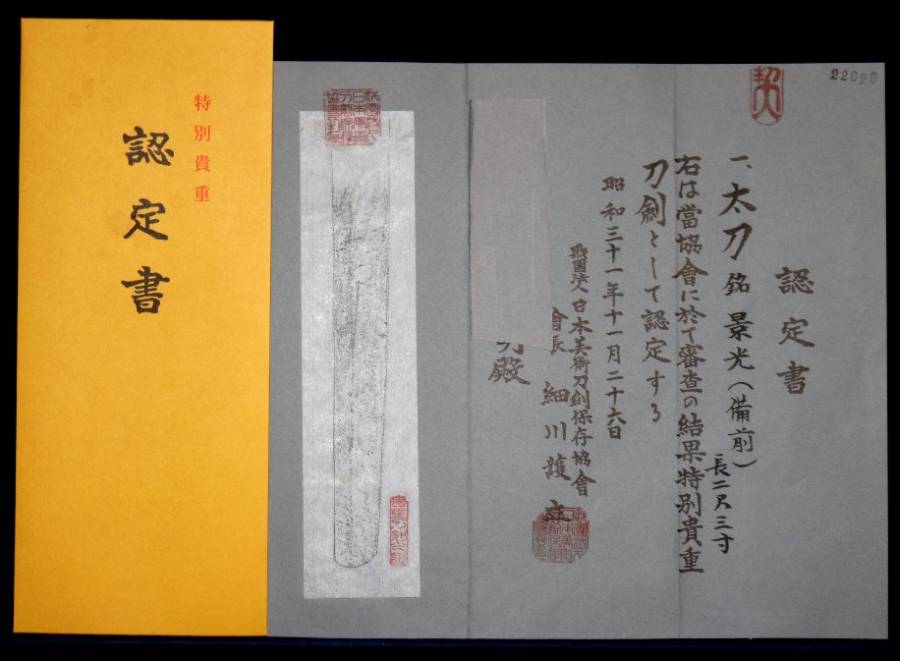 特別貴重
認定書
22020
認定書
一、太刀 銘 景光（備前）
長二尺三寸
右は當協會に於て審査の結果特別貴重
刀劍として認定する
昭和三十一年十一月二十六日
財團法人 日本美術刀劍保存協會
會長 細川護立
殿